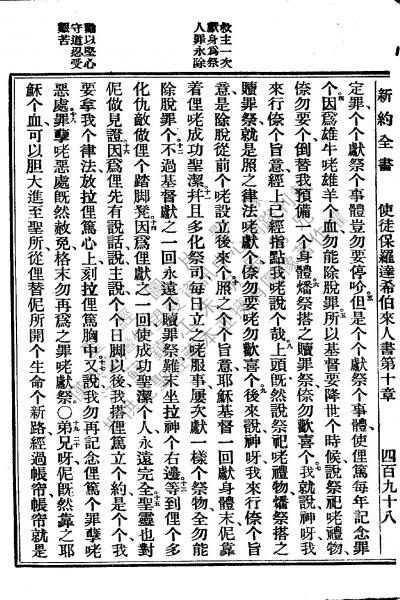 新約全書 使徒保羅達希伯來人書第十章 四百九十八
救主一次
獻身爲祭
人罪永除
勸以堅心
守道忍受
艱苦
定罪个个獻祭个事體豈勿要停吤但是个个獻祭个事體使俚篤每年記念罪
个因爲雄牛咾雄羊个血勿能除脫罪所以基督要降世个時候說祭祀咾禮物
倷勿要个倒替我預備一个身體燔祭搭之贖罪祭倷勿歡喜个我就說神呀我
來行倷个旨意經上已經指點我咾說个哉上頭旣然說祭祀咾禮物燔祭搭之
贖罪祭就是照之律法咾獻个倷勿要咾勿歡喜个後來說神呀我來行倷个旨
意是除脫從前个咾設立後來个照之个个旨意耶穌基督一回獻身體末伲靠
着俚咾成功聖潔并且多化祭司每日立之咾服事屢次獻一樣个祭物全勿能
除脫罪个不過基督獻之一回永遠个贖罪祭難末坐拉神个右邊等到俚个多
化仇敵做俚个踏脚凳因爲俚獻之一回使成功聖潔个人永遠完全聖靈也對
伲做見證因爲俚先有說話說主說个个日脚以後我搭俚篤立个約是个个我
要拿我个律法放拉俚篤心上刻拉俚篤胸中又說我勿再記念俚篤个罪孽咾
惡處罪孽咾惡處旣然赦免格末勿再爲之罪咾獻祭〇弟兄呀伲旣然靠之耶
穌个血可以胆大進至聖所從俚替伲所開个生命个新路經過帳帘帳帘就是